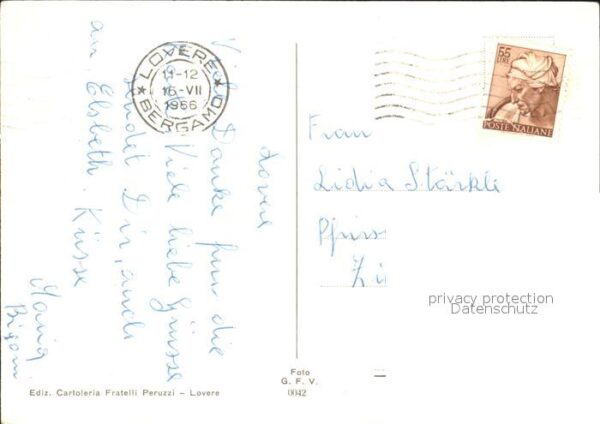 Lovere
Viele Danke für die
Karte. Viele liebe Grüsse
sendet Dir, auch
an Elsbeth. Küsse
Maria
LOVERE
11-12
16-VII
1966
BERGAMO
55
LIRE
POSTE ITALIANE
Frau
Lidia Stärkle
privacy protection
Datenschutz
Foto
G. F. V.
0042
Ediz. Cartoleria Fratelli Peruzzi – Lovere